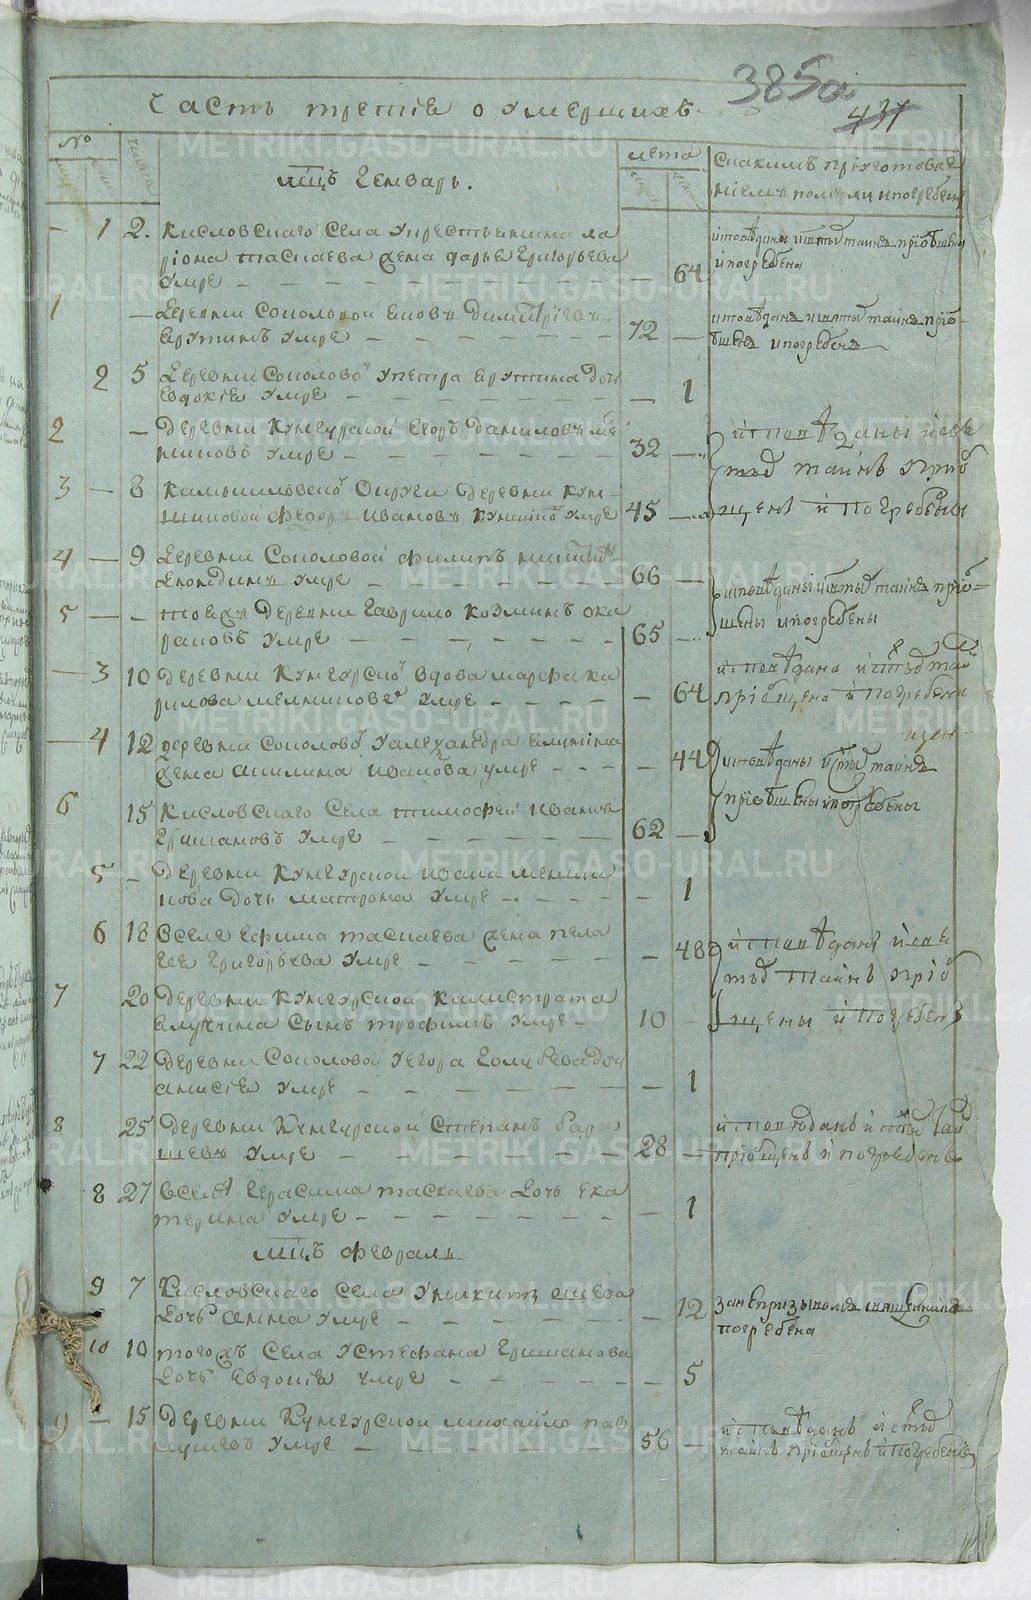 385а
437
Часть третїе о умершихъ
№
числа
лета
скакимъ приуготовле
нїемъ померли ипогребены
мцъ генварь.
1 2. Кисловскаго села укрестьянина ла
рїона таскаева жена дарье григорьева
умре 64
исповѣдана исвятыхъ таинъ прїобщена
ипогребена
1 — деревни Соколовой иповъ димитрїевъ
умре 72
исповѣданъ исвятыхъ таинъ прїо-
бщенъ ипогребенъ
2 5 деревни Соколовой упетра дочь
Евдокїе умре 1
2 — деревни Кунгурской Егоръ даниловъ ме
никовъ умре 32
исповѣданы исвя
тыхъ таинъ прїоб
щены и погребены
3 — 8 Камышловской округи деревни Кук-
шиновой Федоръ Ивановъ умре 45
4 — 9 деревни Соколовой филипъ никитинъ
умре 66
исповѣданы исвятыхъ таинъ прїо-
бщены ипогребены
5 — — тоежъ деревни гаврило козминъ ока
раковъ умре 65
3 10 деревни Кунгурской вдова марфа ки
рилова мелникова умре 64
исповѣдана и святыхъ таи
прїобщена и погребена
4 12 деревни Соколовой уалександра
жена акилина Иванова умре 44
исповѣданы исвятыхъ таинъ
прїобщены ипогребены
6 15 Кисловскаго Села тимофей Иванов
гришановъ умре 62
5 — деревни Кунгурской ивана мелни
кова дочь матрона умре 1
6 18 вселе Ефима таскаева жена пела
гее григорьева умре 48
исповѣданы исвя
тыхъ таинъ прїоб
щены и погребены
7 20 деревни Кунгурской Калистрата
сынъ трофимъ умре 10
7 22 деревни Соколовой уегора голубева доч
анисїе умре 1
8 25 деревни Кунгурской Степанъ бара
шевъ умре 28
исповѣданъ и святыхъ таинъ
прїобщенъ и погребенъ
8 27 вселѣ герасима таскаева дочь ека
терина умре 1
мцъ февраль
9 7 Кисловскаго села уникиты
дочь анна умре 12
занепризывомъ священника
погребена
10 10 тогожъ села устефана гришанова
дочь Евдокїе умре 5
9 — 15 деревни Кунгурской михайло
умре 56
исповѣданъ и святыхъ
таинъ прїобщенъ и погребенъ
METRIKI.GASO-URAL.RU